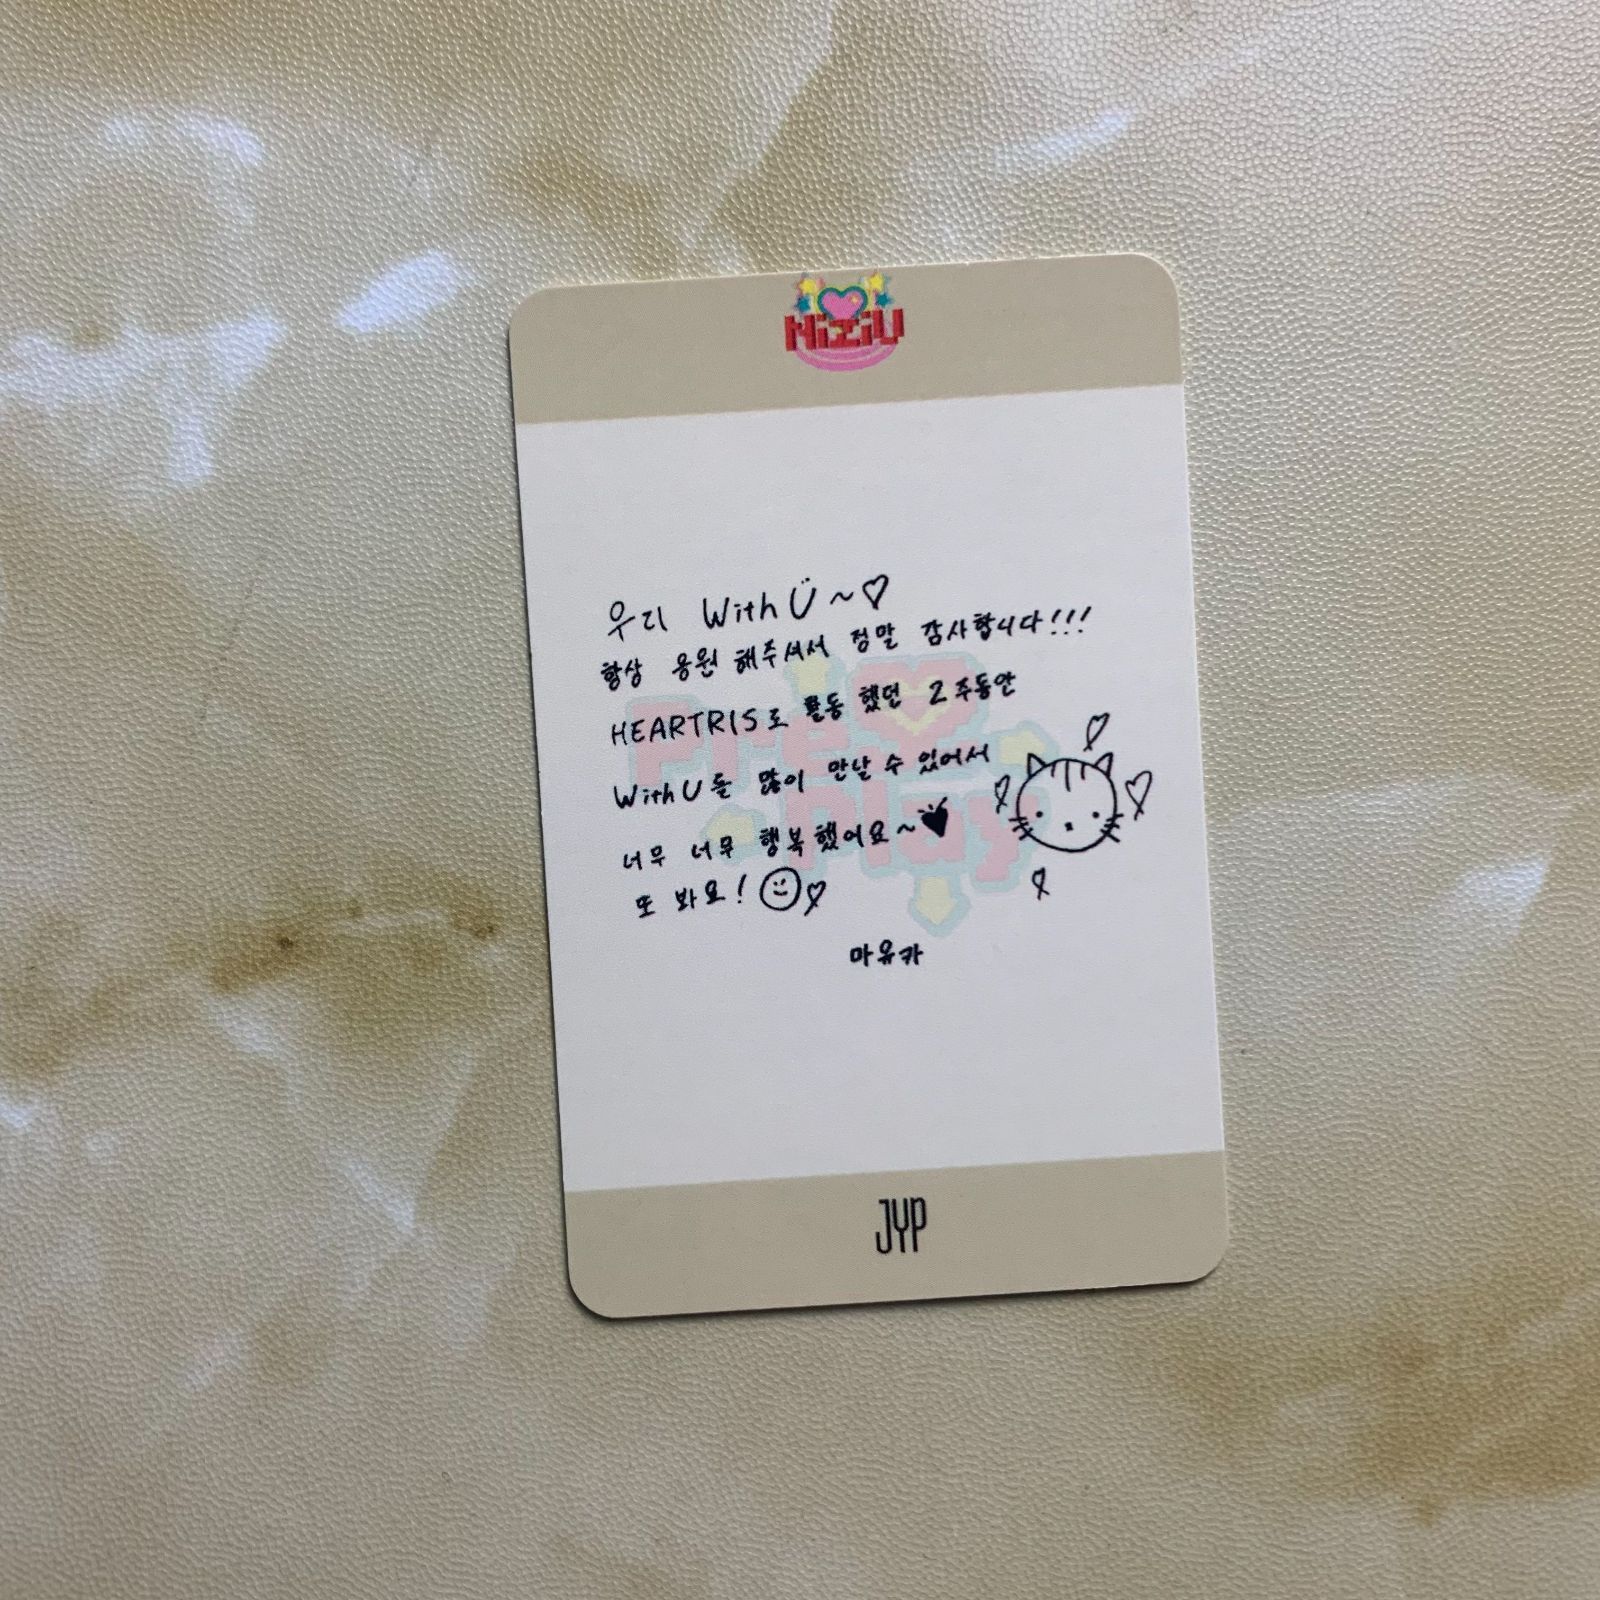 NiziU
우리 WithU~♡
항상 응원 해주셔서 정말 감사합니다!!!
HEARTRIS로 활동 했던 2주동안
WithU를 많이 만날 수 있어서
너무 너무 행복했어요~♥
또 봐요! ☺♡
마유카
Press Play
JYP